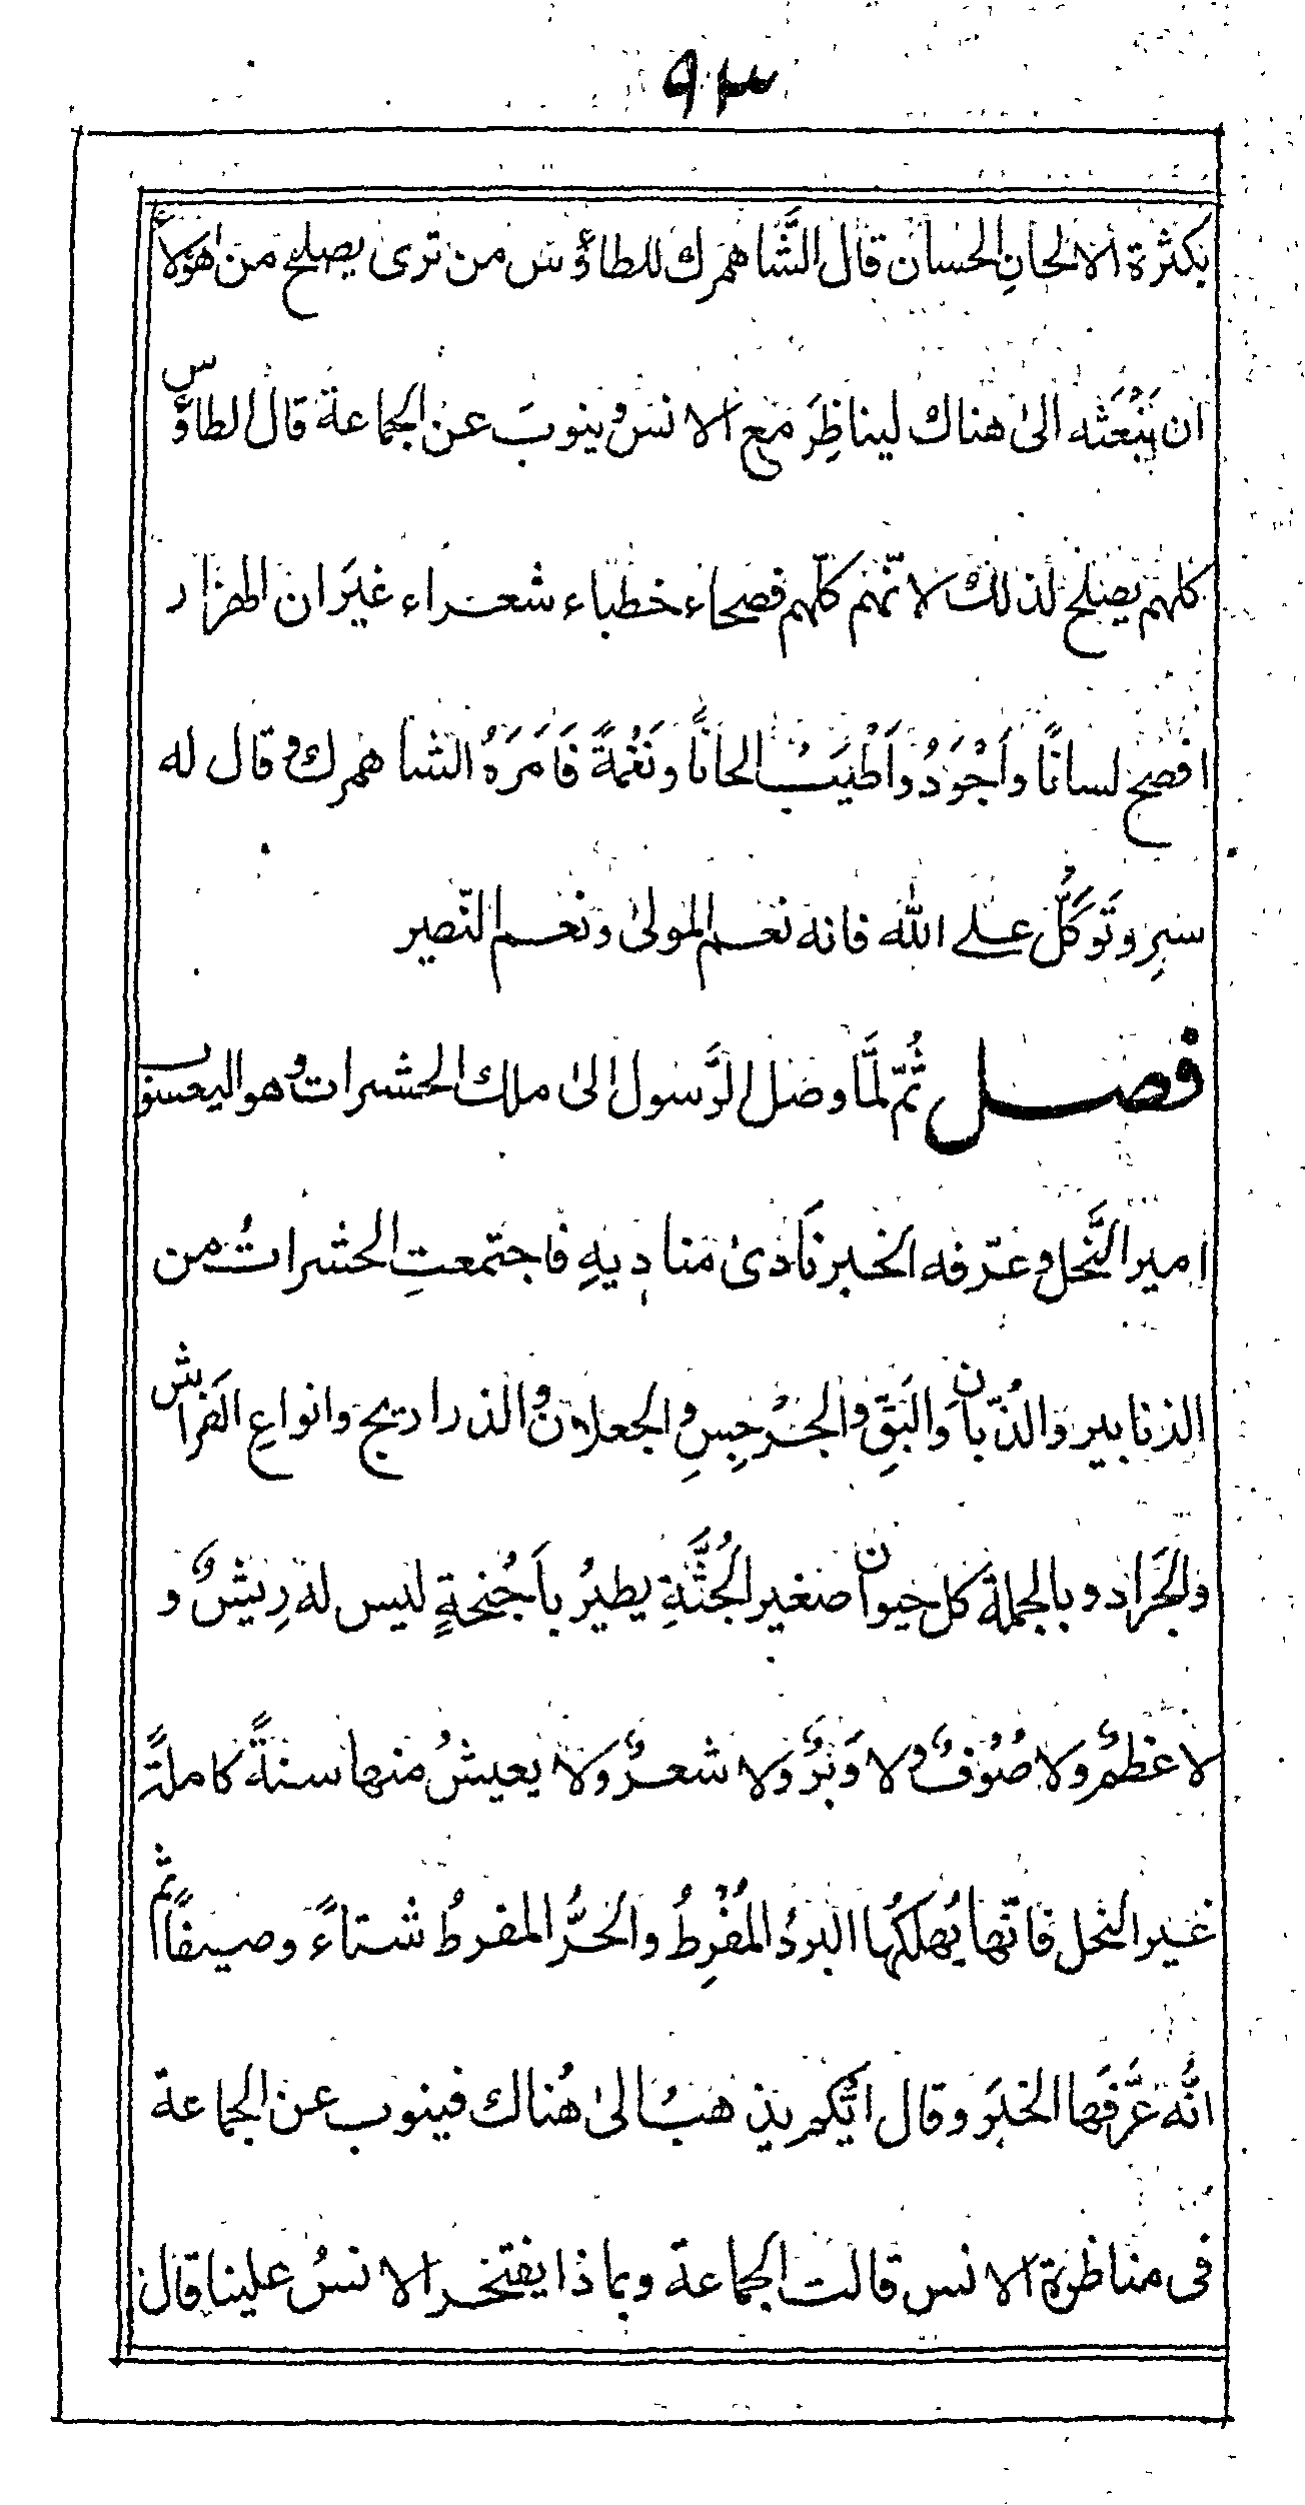 ٩٣
بكثرة الالحانِ الحسان قال الشَّاهمرك للطاؤس من ترى يصلح من هؤلاء
ان يَبْعَثه الىٰ هناك ليناظِرَ مَع الانس وينوبَ عن الجماعة قال الطاؤس
كلهم يصلح لذلك لانّهم كلّهم فصحاء خطباء شعراء غيرَ ان الهزار
افصح لسانًا واَجْوَدُ واَطْيَبُ الحانًا ونَغْمَةً فَاَمَرَهُ الشاهمرك وقال له
سِر وتَوَكَّل علے الله فانه نعم المولىٰ ونعم النّصير
فصل ثُمّ لمَّا وصل الرَّسول الىٰ ملك الحشرات وهو اليعسوب
امير النَّحل وعرّفه الخبر نَادىٰ مناديهِ فاجتمعتِ الحشراتُ من
الزنابير والذُبّان والبَقِّ والجرْجِسِ والجعلان والذراريح وانواعِ الفَراش
والجَراد وبالجملة كل حيوان صغير الجُثَّةِ يطيرُ باَجْنحةٍ ليس له رِيشٌ و
لا عَظمٌ ولا صُوْفٌ ولا وَبَرٌ ولا شعرٌ ولا يعيشُ منها سنةً كاملةً
غير النحل فانّها يُهلكُها البردُ المُفْرِطُ والحَرُّ المفرطُ شتاءً وصيفًا ثم
انَّه عَرَّفَها الخبَر وقال ايّكم يذهبُ الىٰ هُناك فينوب عن الجماعة
فى مناظرة الانس قالت الجماعة وبماذا يفتخر الانسُ علينا قال